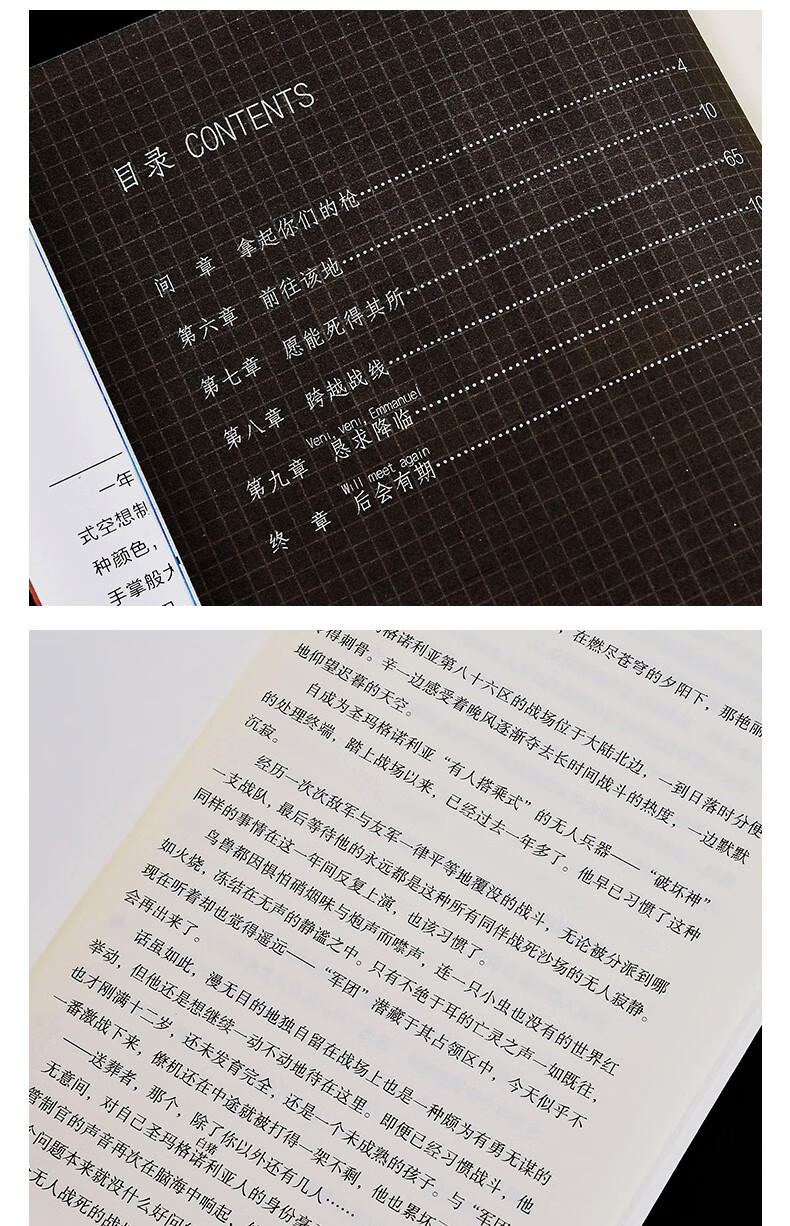 目录 CONTENTS
间 章 拿起你们的枪 4
第六章 前往该地 10
第七章 愿能死得其所 65
第八章 跨越战线 10
Veni, veni, Emmanuel
第九章 恳求降临
Will meet again
终 章 后会有期
一年
式空想制
种颜色，
手掌般大
，在燃尽苍穹的夕阳下，那艳丽
玛格诺利亚第八十六区的战场位于大陆北边，一到日落时分便
得刺骨。辛一边感受着晚风逐渐夺去长时间战斗的热度，一边默默
地仰望迟暮的天空。
自成为圣玛格诺利亚“有人搭乘式”的无人兵器——“破坏神”
的处理终端，踏上战场以来，已经过去一年多了。他早已习惯了这种
沉寂。
经历一次次敌军与友军一律平等地覆没的战斗，无论被分派到哪
一支战队，最后等待他的永远都是这种所有同伴战死沙场的无人寂静。
同样的事情在这一年间反复上演，也该习惯了。
鸟兽都因惧怕硝烟味与炮声而噤声，连一只小虫也没有的世界红
如火烧，冻结在无声的静谧之中。只有不绝于耳的亡灵之声一如既往，
现在听着却也觉得遥远——“军团”潜藏于其占领区中，今天似乎不
会再出来了。
话虽如此，漫无目的地独自留在战场上也是一种颇为有勇无谋的
举动，但他还是想继续一动不动地待在这里。即便已经习惯战斗，他
也才刚满十二岁，还未发育完全，还是一个未成熟的孩子。与“军团”
一番激战下来，僚机还在中途就被打得一架不剩，他也累坏
——送葬者，那个，除了你以外还有几人……
白猪
无意间，对自己圣玛格诺利亚人的身份毫
管制官的声音再次在脑海中响起，
个问题本来就没什么好问
无人战死的战